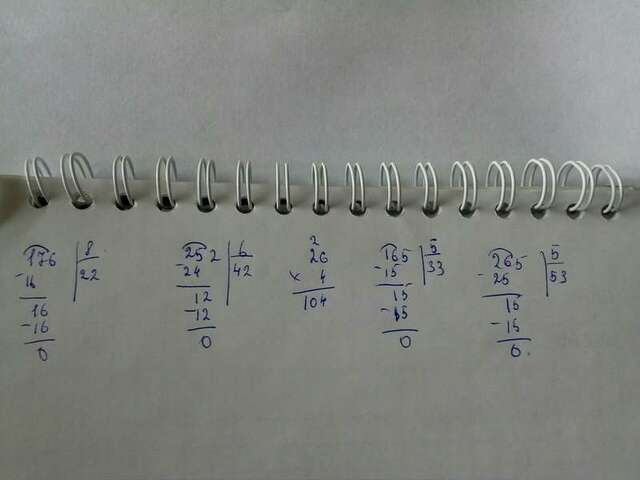 176 | 8
-16 | 22
16
-16
0
252 | 6
-24 | 42
12
-12
0
2
26
× 4
104
165 | 5
-15 | 33
15
-15
0
265 | 5
-25 | 53
15
-15
0.